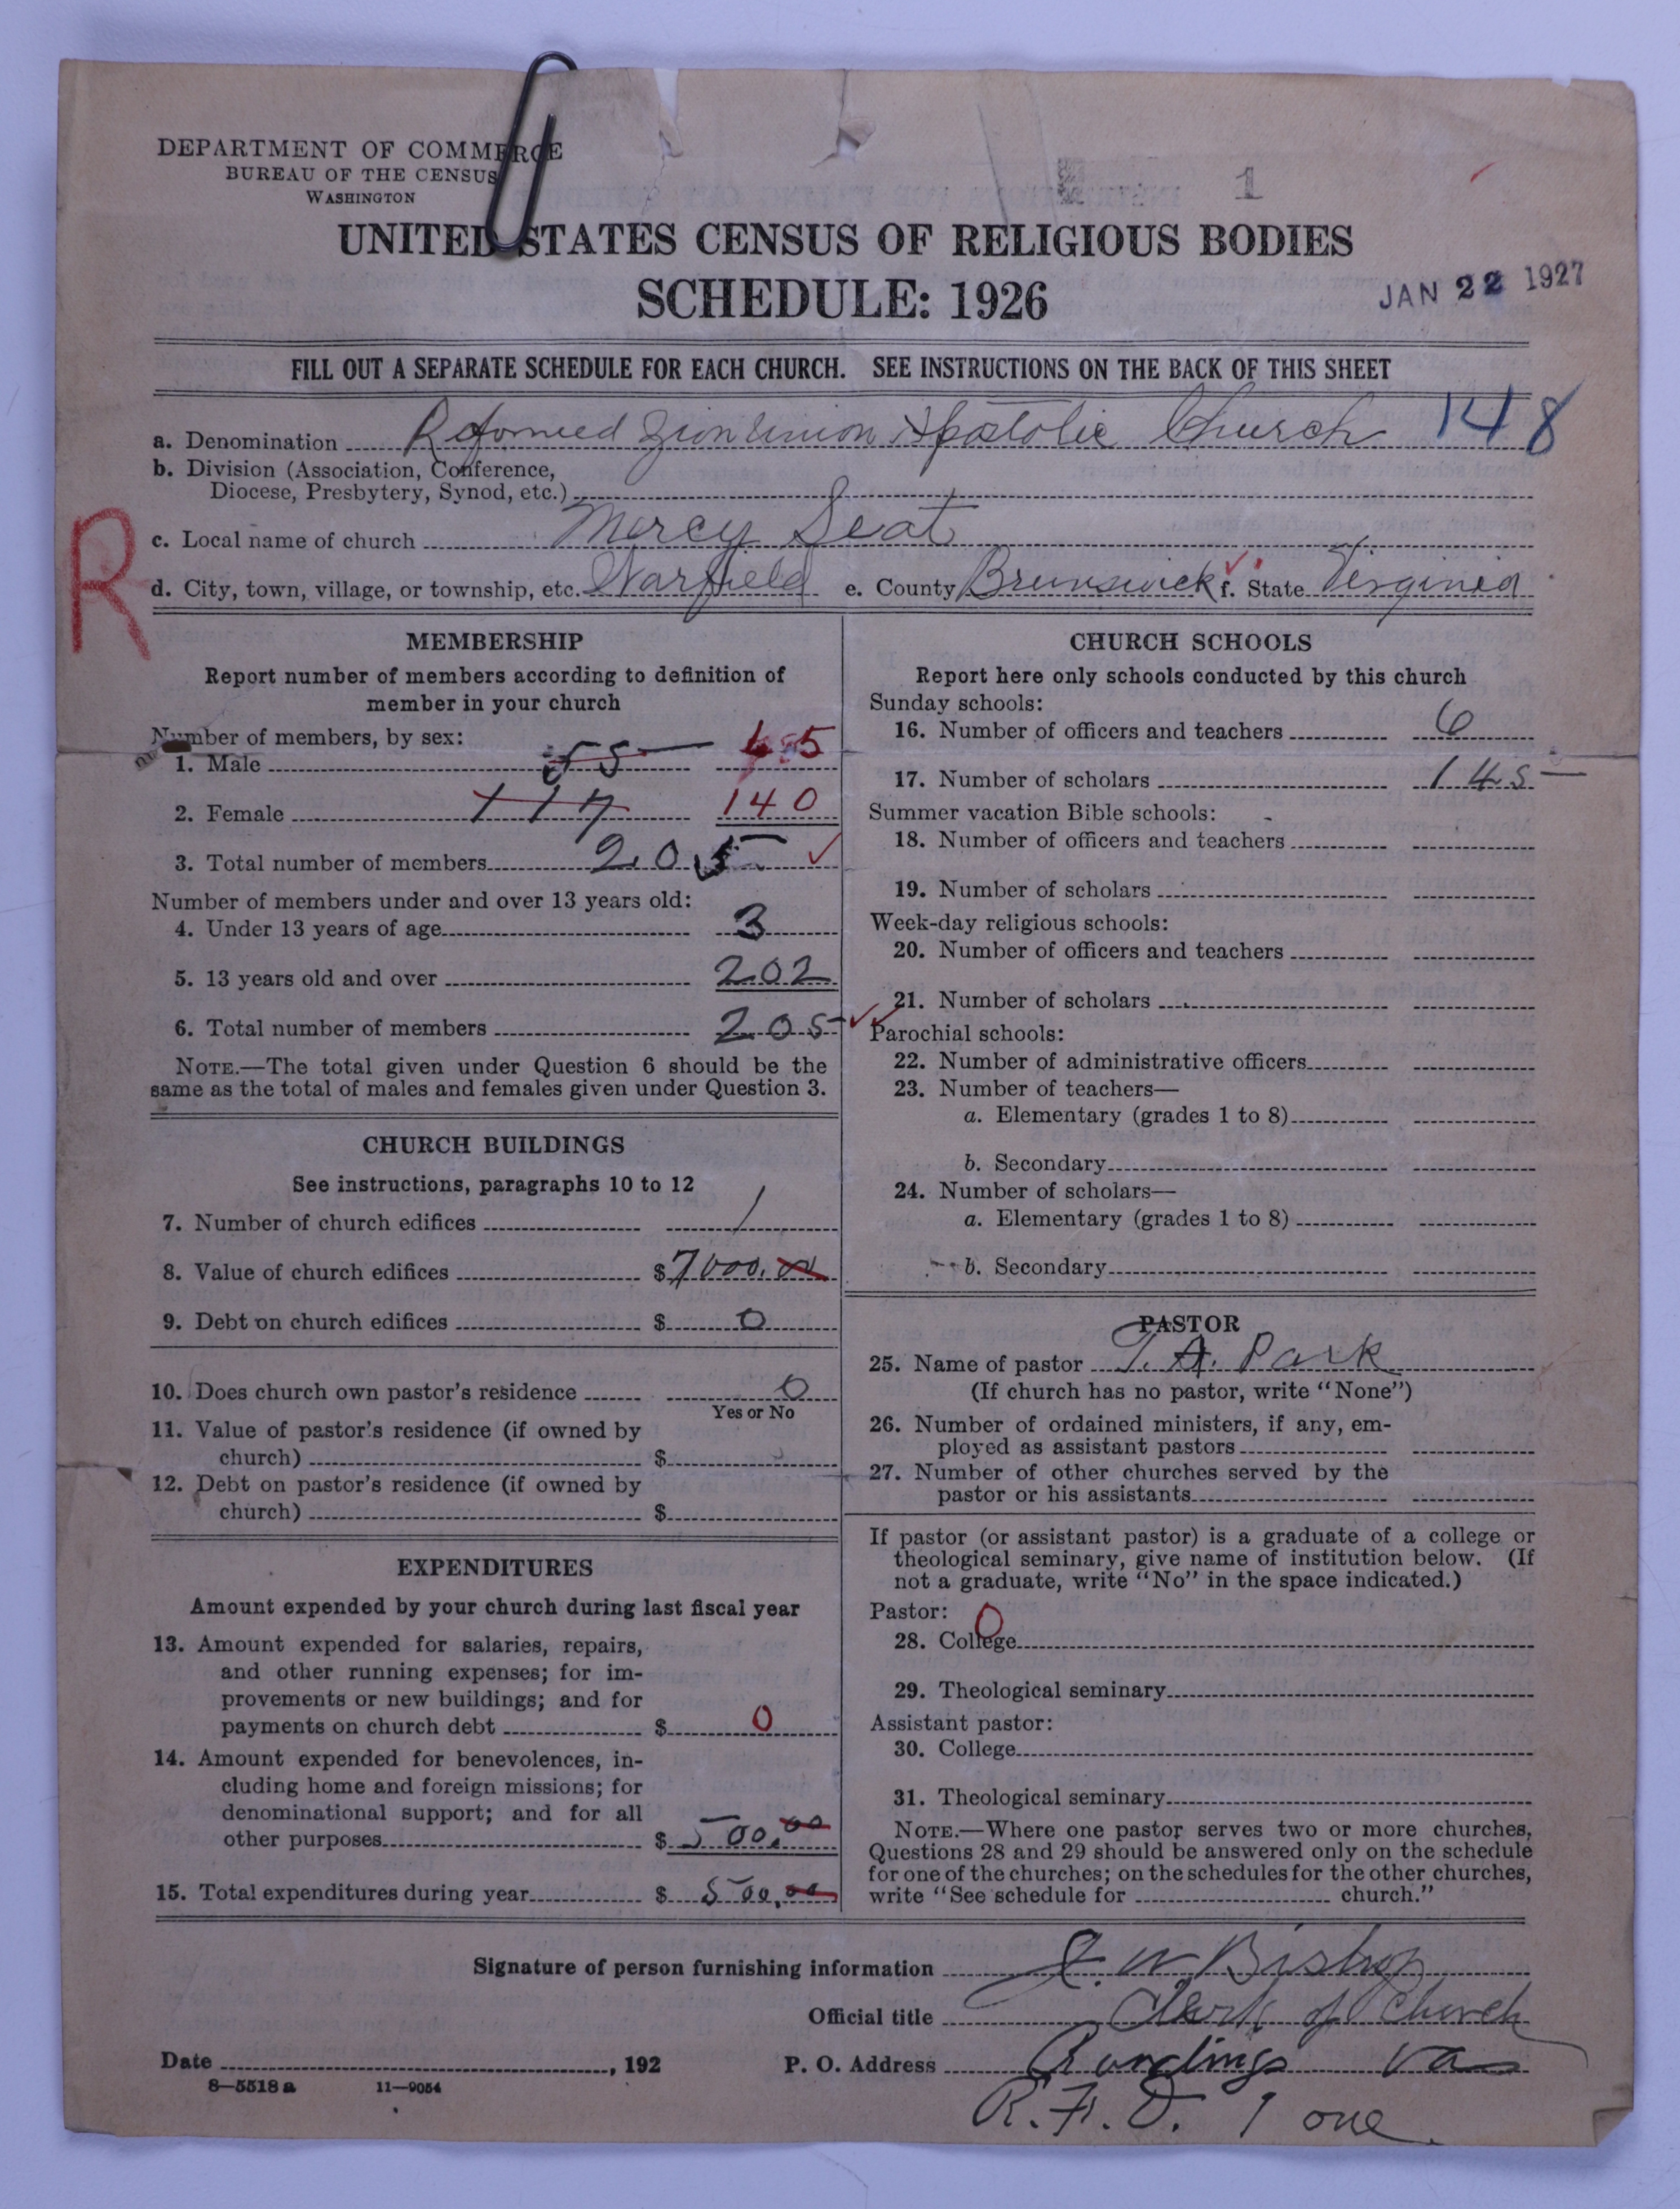 DEPARTMENT OF COMMERCE
BUREAU OF THE CENSUS
WASHINGTON
1
UNITED STATES CENSUS OF RELIGIOUS BODIES
SCHEDULE: 1926
JAN 22 1927
FILL OUT A SEPARATE SCHEDULE FOR EACH CHURCH. SEE INSTRUCTIONS ON THE BACK OF THIS SHEET
a. Denomination Reformed Zion Union Apostolic Church 148
b. Division (Association, Conference,
Diocese, Presbytery, Synod, etc.)
R
c. Local name of church Mercy Seat
d. City, town, village, or township, etc. Warfield e. County Brunswick f. State Virginia
MEMBERSHIP
Report number of members according to definition of
member in your church
Number of members, by sex:
1. Male 55 65
2. Female 117 140
3. Total number of members 205 ✓
Number of members under and over 13 years old:
4. Under 13 years of age 3
5. 13 years old and over 202
6. Total number of members 205 ✓✓
NOTE.—The total given under Question 6 should be the
same as the total of males and females given under Question 3.
CHURCH BUILDINGS
See instructions, paragraphs 10 to 12
7. Number of church edifices 1
8. Value of church edifices $7000.00
9. Debt on church edifices $ 0
10. Does church own pastor's residence 0
Yes or No
11. Value of pastor's residence (if owned by
church) $
12. Debt on pastor's residence (if owned by
church) $
EXPENDITURES
Amount expended by your church during last fiscal year
13. Amount expended for salaries, repairs,
and other running expenses; for im-
provements or new buildings; and for
payments on church debt $ 0
14. Amount expended for benevolences, in-
cluding home and foreign missions; for
denominational support; and for all
other purposes $ 500.00
15. Total expenditures during year $ 500.00
CHURCH SCHOOLS
Report here only schools conducted by this church
Sunday schools:
16. Number of officers and teachers 6
17. Number of scholars 145
Summer vacation Bible schools:
18. Number of officers and teachers
19. Number of scholars
Week-day religious schools:
20. Number of officers and teachers
21. Number of scholars
Parochial schools:
22. Number of administrative officers
23. Number of teachers—
a. Elementary (grades 1 to 8)
b. Secondary
24. Number of scholars—
a. Elementary (grades 1 to 8)
b. Secondary
PASTOR
25. Name of pastor T. A. Park
(If church has no pastor, write "None")
26. Number of ordained ministers, if any, em-
ployed as assistant pastors
27. Number of other churches served by the
pastor or his assistants
If pastor (or assistant pastor) is a graduate of a college or
theological seminary, give name of institution below. (If
not a graduate, write "No" in the space indicated.)
Pastor: 0
28. College
29. Theological seminary
Assistant pastor:
30. College
31. Theological seminary
NOTE.—Where one pastor serves two or more churches,
Questions 28 and 29 should be answered only on the schedule
for one of the churches; on the schedules for the other churches,
write "See schedule for church."
Signature of person furnishing information J. W Bishop
Official title Clerk of Church
Date , 192 P. O. Address Rawlings Va
8—5518 a 11—9054
R. F. D. 1 one